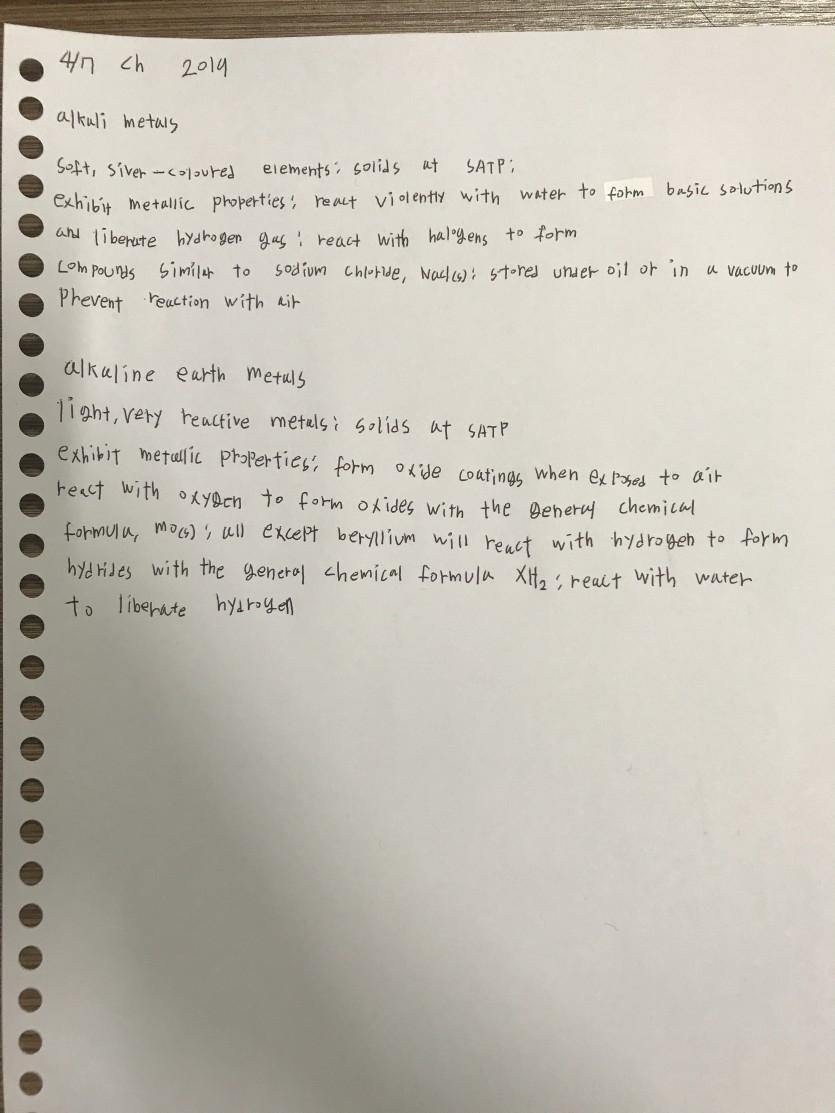 4/17 ch 2019
alkali metals
Soft, siver-coloured elements; solids at SATP;
exhibit metallic properties; react violently with water to form basic solutions
and liberate hydrogen gas; react with halogens to form
compounds similar to sodium chloride, Nacl(s); stored under oil or in a vacuum to
prevent reaction with air
alkaline earth metals
light, very reactive metals; solids at SATP
exhibit metallic properties; form oxide coatings when exposed to air
react with oxygen to form oxides with the general chemical
formula, MO(s); all except beryllium will react with hydrogen to form
hydrides with the general chemical formula XH₂; react with water
to liberate hydrogen